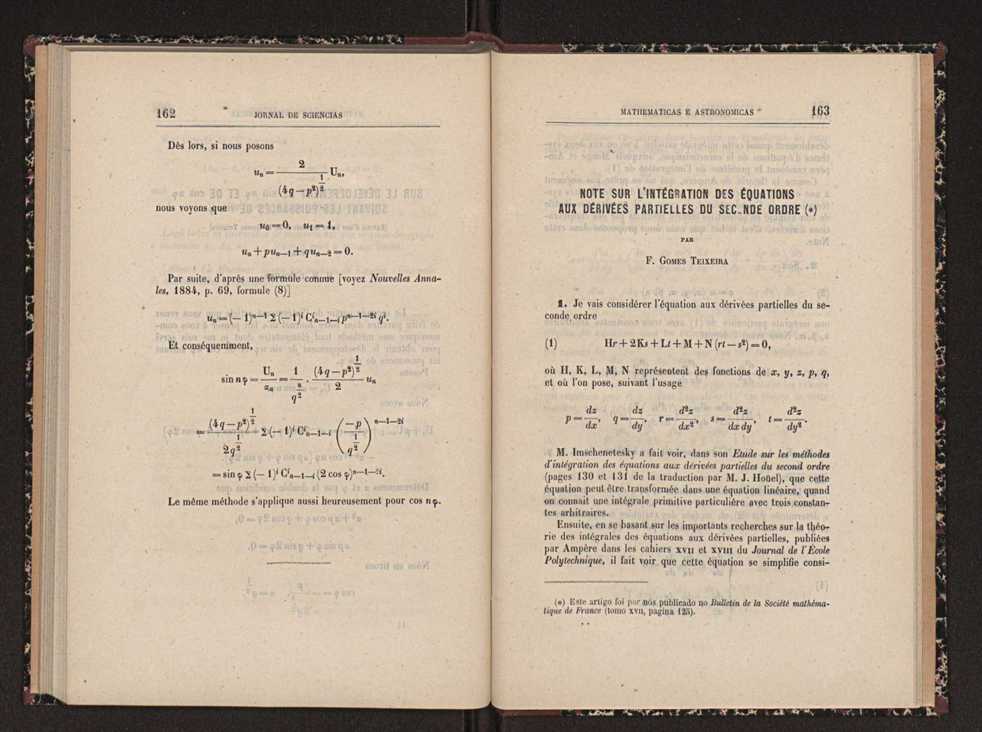 162 JORNAL DE SCIENCIAS
Dès lors, si nous posons
uₙ = 2 / (4q—p²)^{1/2} Uₙ,
nous voyons que
u₀ = 0, u₁ = 1,
uₙ + puₙ₋₁ + quₙ₋₂ = 0.
Par suite, d'après une formule connue [voyez Nouvelles Anna-
les, 1884, p. 69, formule (8)]
uₙ = (— 1)ⁿ⁻¹ Σ (— 1)ⁱ Cⁱₙ₋₁₋ᵢ pⁿ⁻¹⁻²ⁱ qⁱ.
Et conséquemment,
sin nφ = Uₙ / αₙ = 1 / q^{n/2} . (4q—p²)^{1/2} / 2 uₙ
= (4q—p²)^{1/2} / 2q^{1/2} Σ (— 1)ⁱ Cⁱₙ₋₁₋ᵢ (—p / q^{1/2})ⁿ⁻¹⁻²ⁱ
= sin φ Σ (— 1)ⁱ Cⁱₙ₋₁₋ᵢ (2 cos φ)ⁿ⁻¹⁻²ⁱ.
Le même méthode s'applique aussi heureusement pour cos nφ.
MATHEMATICAS E ASTRONOMICAS 163
NOTE SUR L'INTÉGRATION DES ÉQUATIONS
AUX DÉRIVÉES PARTIELLES DU SEC NDE ORDRE (*)
PAR
F. GOMES TEIXEIRA
1. Je vais considérer l'équation aux dérivées partielles du se-
conde ordre
(1) Hr + 2Ks + Lt + M + N (rt — s²) = 0,
où H, K, L, M, N représentent des fonctions de x, y, z, p, q,
et où l'on pose, suivant l'usage
p = dz/dx, q = dz/dy, r = d²z/dx², s = d²z/dx dy, t = d²z/dy².
M. Imschenetesky a fait voir, dans son Etude sur les méthodes
d'intégration des équations aux dérivées partielles du second ordre
(pages 130 et 131 de la traduction par M. J. Houel), que cette
équation peut être transformée dans une équation linéaire, quand
on connait une intégrale primitive particulière avec trois constan-
tes arbitraires.
Ensuite, en se basant sur les importants recherches sur la théo-
rie des intégrales des équations aux dérivées partielles, publiées
par Ampère dans les cahiers XVII et XVIII du Journal de l'École
Polytechnique, il fait voir que cette équation se simplifie consi-
(*) Este artigo foi por nós publicado no Bulletin de la Société mathéma-
tique de France (tomo XVII, pagina 125).